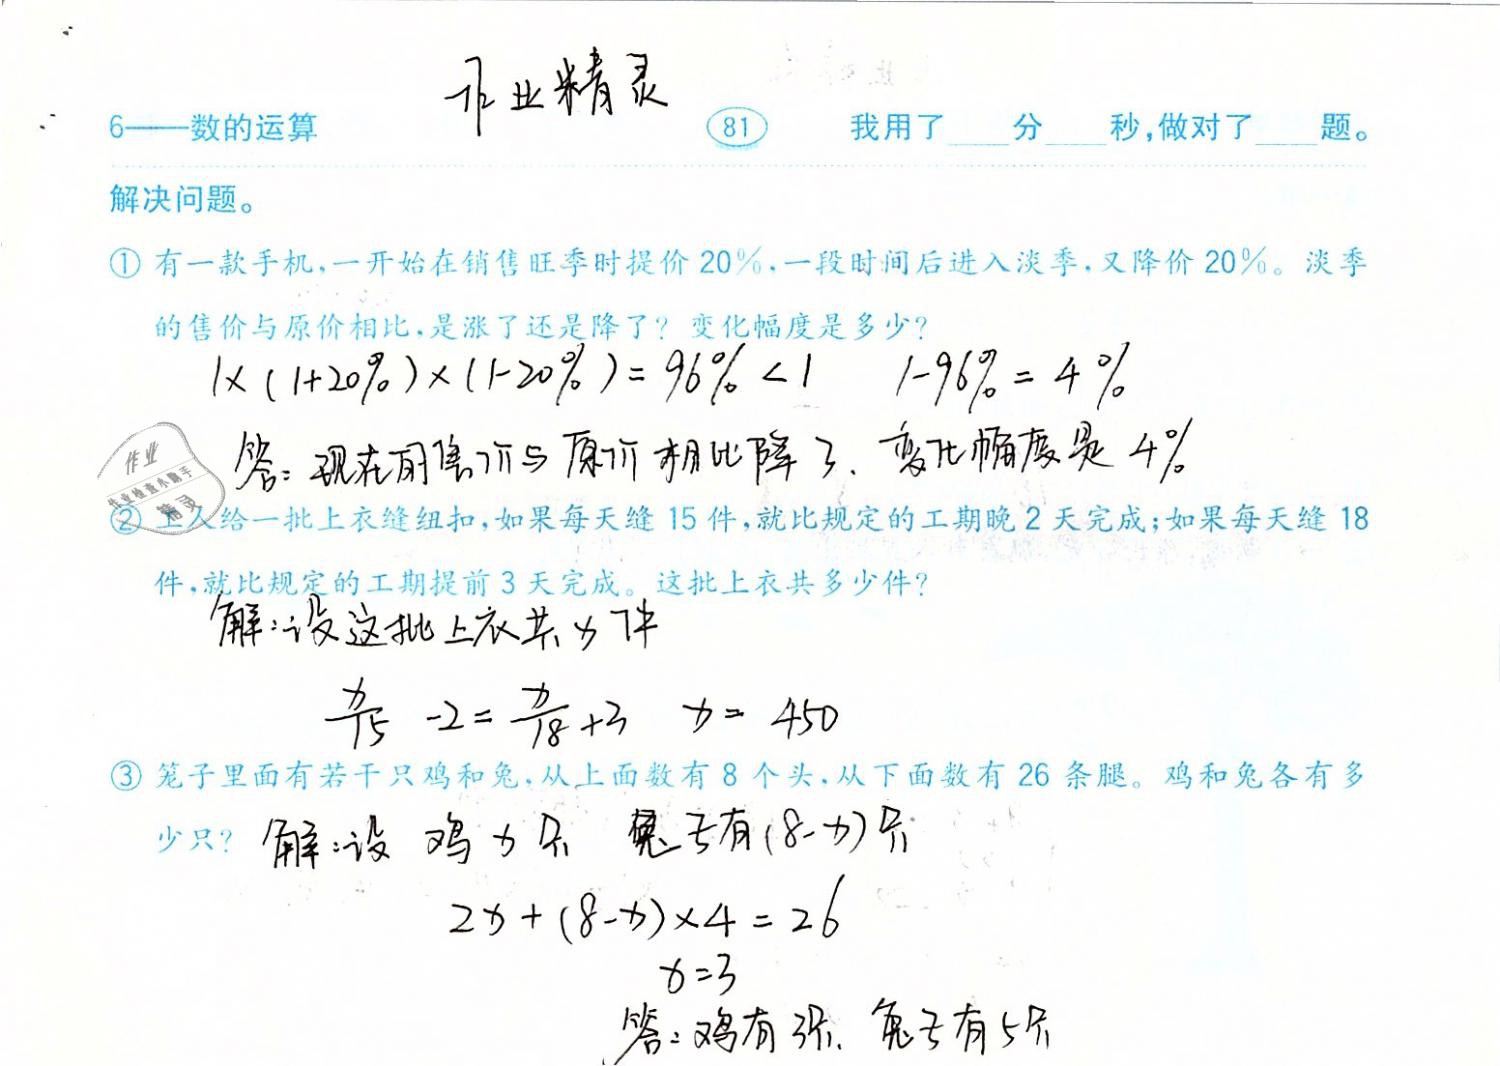 作业精灵
6——数的运算 81 我用了____分____秒,做对了____题。
解决问题。
① 有一款手机,一开始在销售旺季时提价 20%,一段时间后进入淡季,又降价 20%。淡季
的售价与原价相比,是涨了还是降了? 变化幅度是多少?
1×(1+20%)×(1-20%)=96%<1 1-96%=4%
答:现在的售价与原价相比降了、变化幅度是4%
作业
作业检查小助手
精灵
② 工人给一批上衣缝纽扣,如果每天缝 15 件,就比规定的工期晚 2 天完成;如果每天缝 18
件,就比规定的工期提前 3 天完成。这批上衣共多少件?
解:设这批上衣共x件
x/15 -2= x/18 +3 x= 450
③ 笼子里面有若干只鸡和兔,从上面数有 8 个头,从下面数有 26 条腿。鸡和兔各有多
少只? 解:设 鸡x只 兔子有(8-x)只
2x+(8-x)×4=26
x=3
答:鸡有3只、兔子有5只